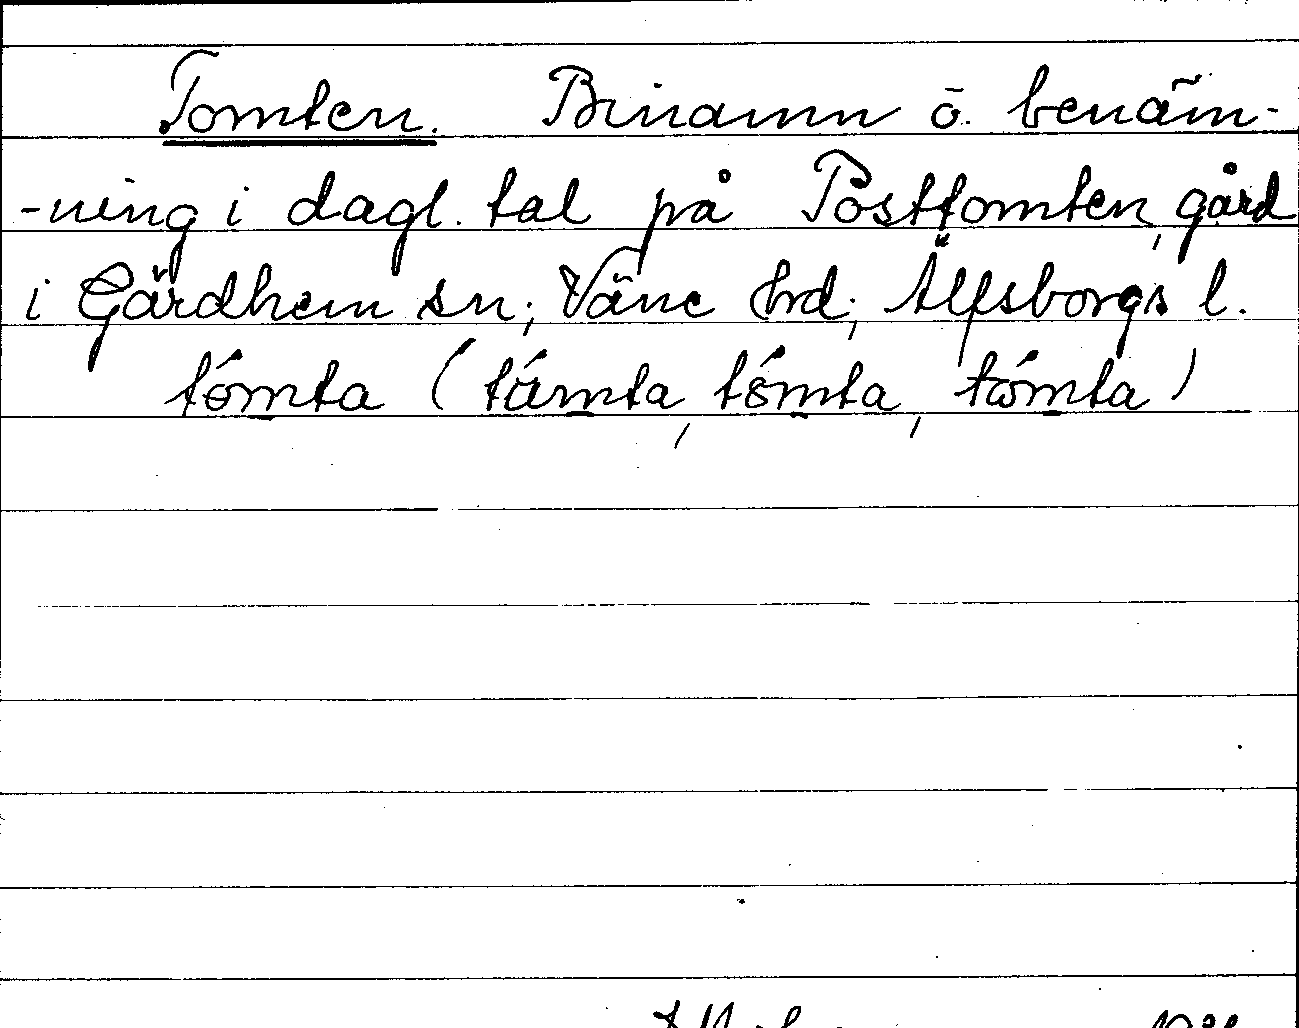 Tomten. Binamn o. benäm-
-ning i dagl. tal på Posttomten, gård
i Gärdhem sn; Väne hrd; Älfsborgs l.
tómta (támta, tómta, tómta)